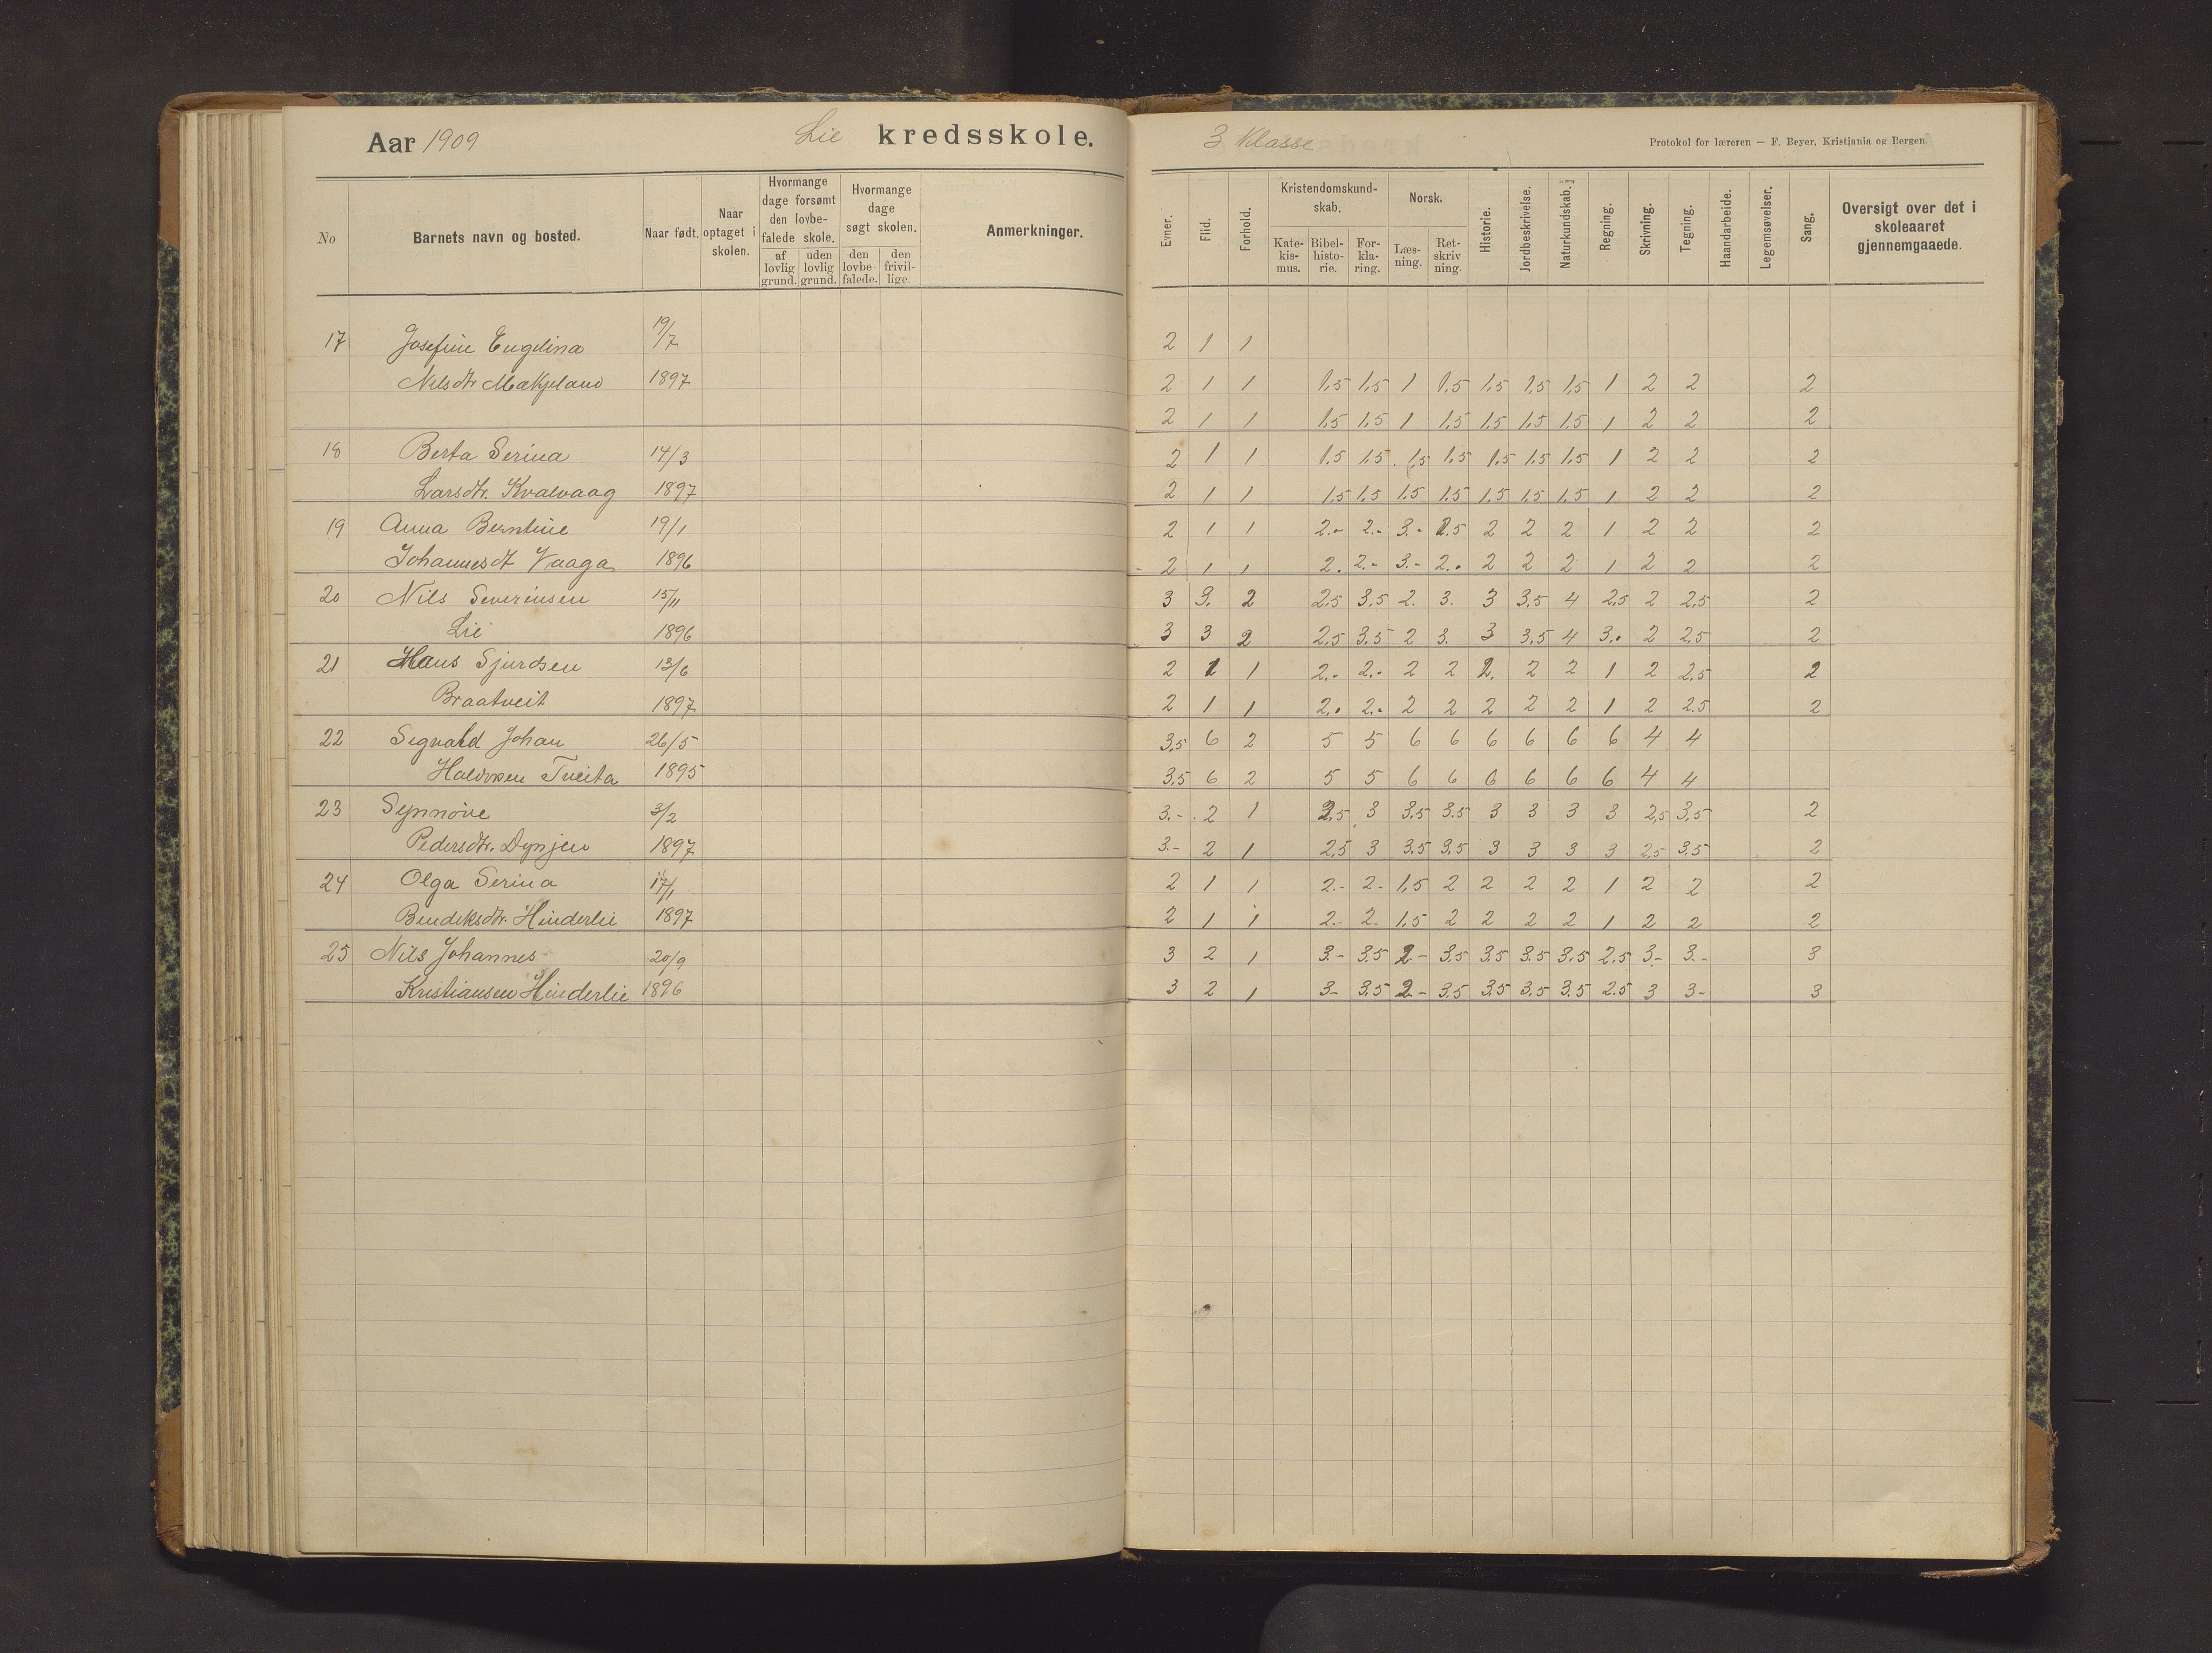 Aar 1909 Lie kredsskole. 3 Klasse Protokol for læreren — F. Beyer, Kristjania og Bergen.
No Barnets navn og bosted. Naar født. Naar optaget i skolen. Hvormange dage forsømt den lovbefalede skole. af lovlig grund. uden lovlig grund. Hvormange dage søgt skolen. den lovbefalede. den frivillige. Anmerkninger. Evner. Flid. Forhold. Kristendomskundskab. Katekismus. Bibelhistorie. Forklaring. Norsk. Læsning. Retskrivning. Historie. Jordbeskrivelse. Naturkundskab. Regning. Skrivning. Tegning. Haandarbeide. Legemsøvelser. Sang. Oversigt over det i skoleaaret gjennemgaaede.
17 Josefine Engelina 19/7 2 1 1
Nilsdtr Mækjeland 1897 2 1 1 1,5 1,5 1 1,5 1,5 1,5 1,5 1 2 2 2
2 1 1 1,5 1,5 1 1,5 1,5 1,5 1,5 1 2 2 2
18 Berta Serina 14/3 2 1 1 1,5 1,5 1,5 1,5 1,5 1,5 1,5 1 2 2 2
Larsdtr. Kvalvaag 1897 2 1 1 1,5 1,5 1,5 1,5 1,5 1,5 1,5 1 2 2 2
19 Anna Berntine 19/1 2 1 1 2.- 2.- 3.- 2.5 2 2 2 1 2 2 2
Johannesdt Vaaga 1896 2 1 1 2. 2.- 3.- 2. 2 2 2 1 2 2 2
20 Nils Severinsen 15/11 3 3. 2 2,5 3,5 2. 3. 3 3,5 4 2,5 2 2,5 2
Lie 1896 3 3 2 2,5 3,5 2 3. 3 3,5 4 3. 2 2,5 2
21 Hans Sjurdsen 13/6 2 1 1 2.- 2.- 2 2 2. 2 2 1 2 2,5 2
Braatveit 1897 2 1 1 2. 2. 2 2 2 2 2 1 2 2.5 2
22 Sigvald Johan 26/5 3,5 6 2 5 5 6 6 6 6 6 6 4 4
Haldorsen Tveita 1895 3,5 6 2 5 5 6 6 6 6 6 6 4 4
23 Synnøve 3/2 3.- 2 1 2,5 3 3,5 3.5 3 3 3 3 2,5 3,5 2
Pedersdtr. Dynjen 1897 3.- 2 1 2,5 3 3.5 3,5 3 3 3 3 2,5 3.5 2
24 Olga Serina 17/1 2 1 1 2.- 2- 1,5 2 2 2 2 1 2 2 2
Bendiksdtr. Hinderlie 1897 2 1 1 2.- 2- 1,5 2 2 2 2 1 2 2 2
25 Nils Johannes 20/9 3 2 1 3.- 3,5 2- 3,5 3,5 3,5 3,5 2,5 3.- 3.- 3
Kristiansen Hinderlie 1896 3 2 1 3- 3,5 2- 3,5 3,5 3,5 3.5 2.5 3 3- 3